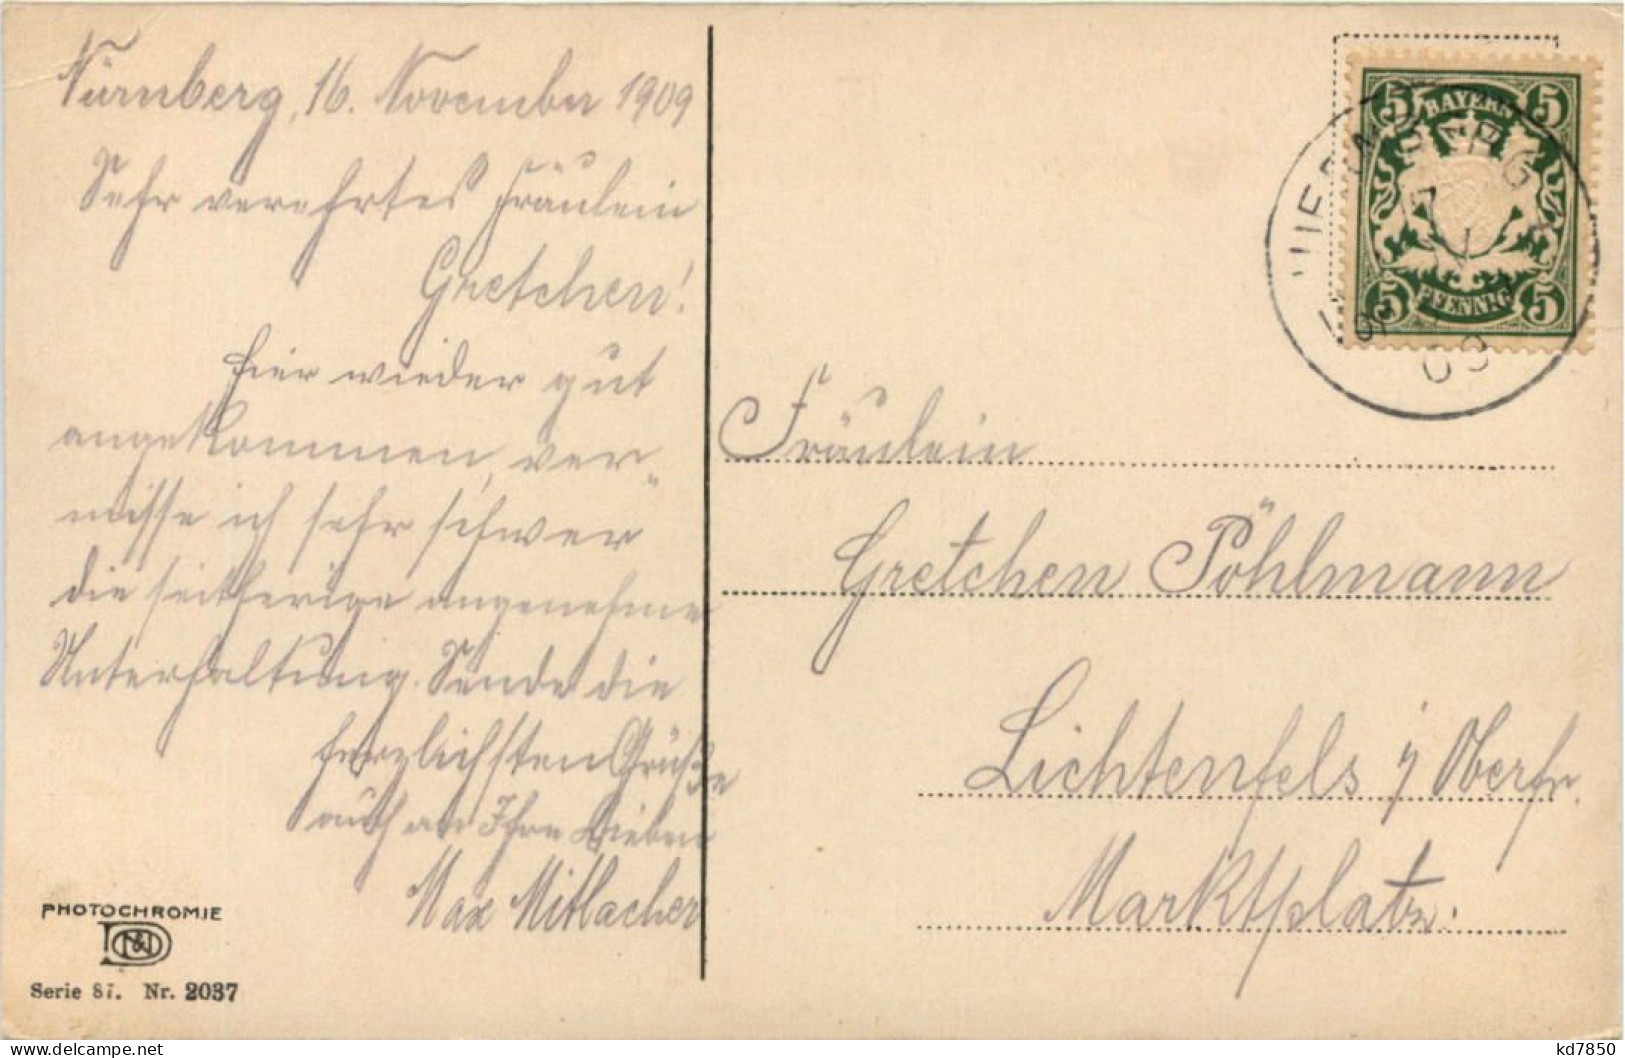 Nürnberg, 16. November 1909
Sehr verehrtes Fräulein
Gretchen!
Hier wieder gut
angekommen, ver-
misse ich sehr schwer
die seitherige angenehme
Unterhaltung. Sende die
herzlichsten Grüße
auch an Ihre Lieben
Max Mitlacher
PHOTOCHROMIE
Serie 87. Nr. 2037
5 BAYERN 5
5 PFENNIG 5
NUERNBERG
09
Fräulein
Gretchen Pöhlmann
Lichtenfels i/ Oberfr.
Marktplatz.
kd7850